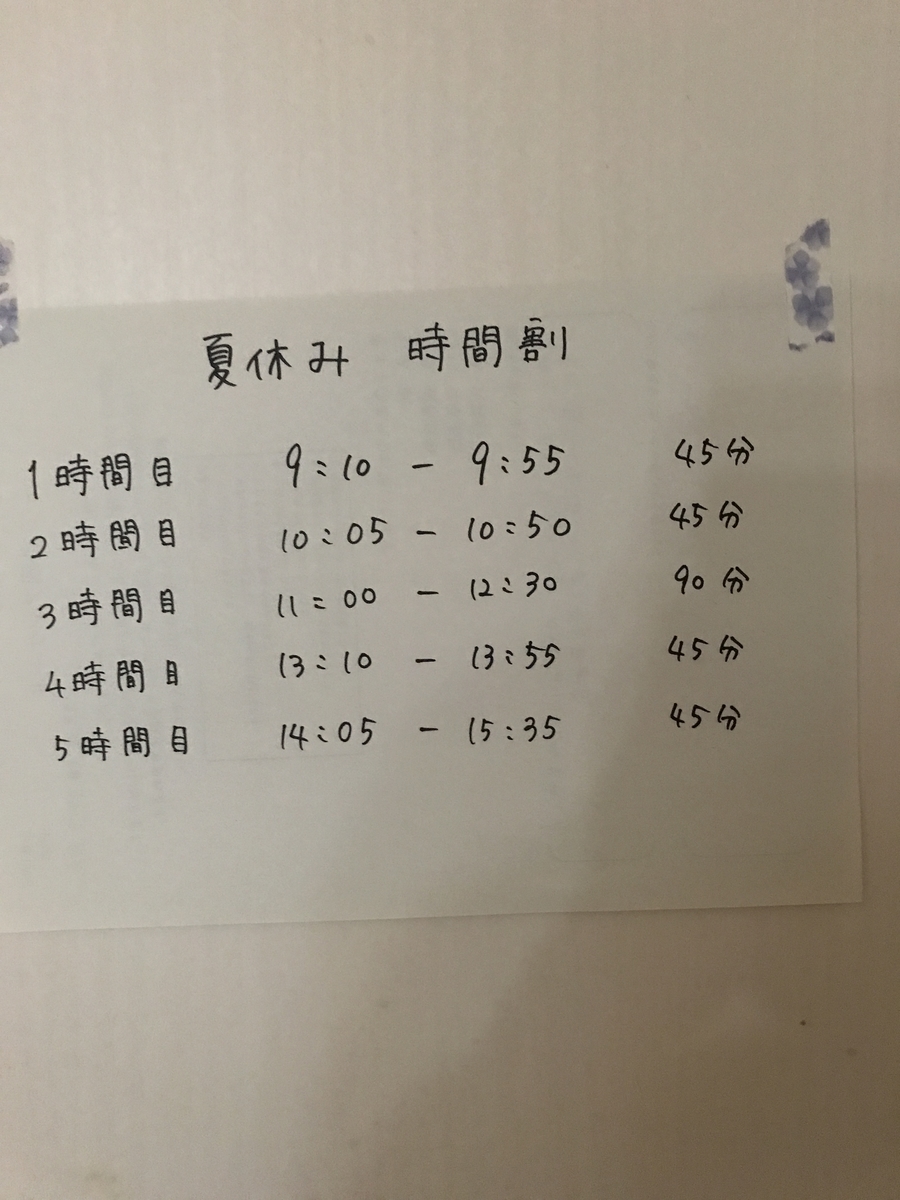 夏休み 時間割
1時間目 9:10 - 9:55 45分
2時間目 10:05 - 10:50 45分
3時間目 11:00 - 12:30 90分
4時間目 13:10 - 13:55 45分
5時間目 14:05 - 15:35 45分